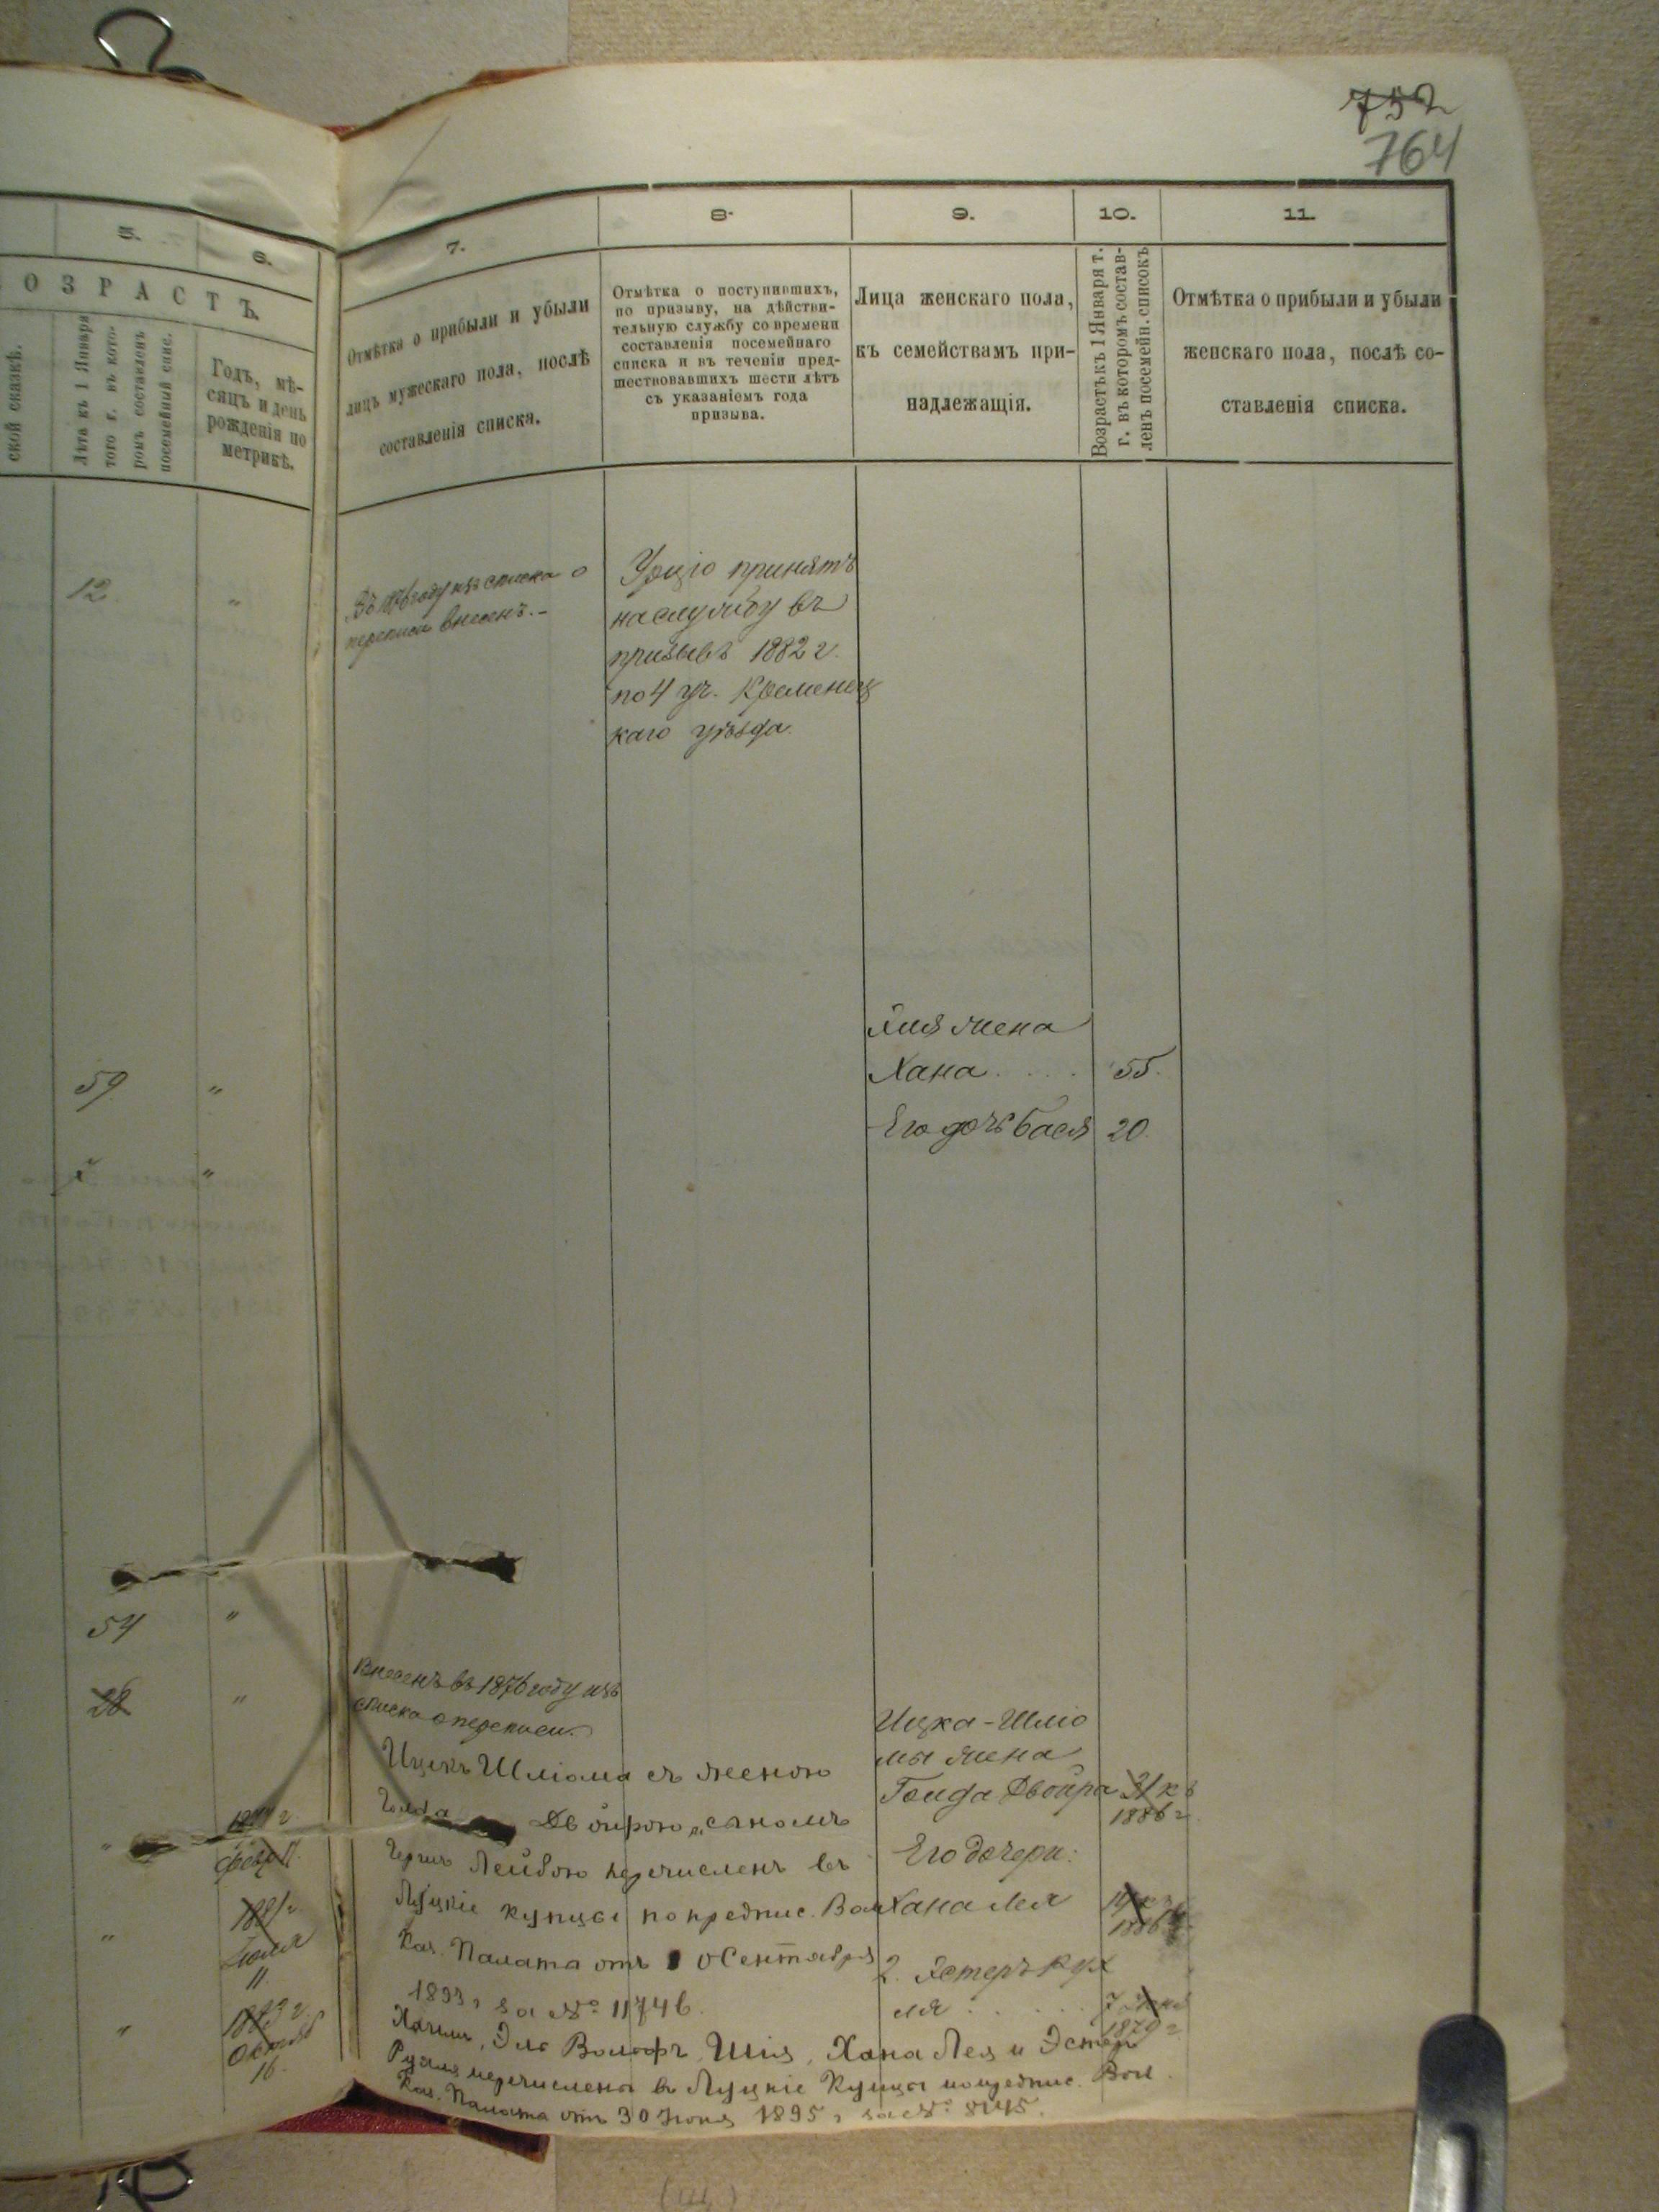 752
764
5.
6.
7.
8.
9.
10.
11.
ОЗРАСТЪ.
ской сказкѣ.
Лѣта къ 1 Января
того г. въ кото-
ромъ составленъ
посемейный спис.
Годъ, мѣ-
сяцъ и день
рожденія по
метрикѣ.
Отмѣтка о прибыли и убыли
лицъ мужескаго пола, послѣ
составленія списка.
Отмѣтка о поступившихъ,
по призыву, на дѣйстви-
тельную службу со времени
составленія посемейнаго
списка и въ теченіи пред-
шествовавшихъ шести лѣтъ
съ указаніемъ года
призыва.
Лица женскаго пола,
къ семействамъ при-
надлежащія.
Возрастъ къ 1 Января т.
г. въ которомъ состав-
ленъ посемейн. списокъ
Отмѣтка о прибыли и убыли
женскаго пола, послѣ со-
ставленія списка.
12 "
Въ 1876 году изъ списка о
переписи внесенъ. -
принятъ
на службу въ
призывъ 1882 г.
по 4 уч. Кременец
каго уѣзда.
жена
Хана . . . . 55.
Его дочь Бася 20.
59 "
"
54 "
28 "
Внесенъ въ 1876 году изъ
списка о переписи.
Ицка-Шліо
мы жена
Голда Двойра 31 къ
1886 г.
Его дочери:
Хана Лея
1886
2. Эстеръ Рух
ля . . . . .
1879 г.
Ицекъ Шліома съ женою
Голда Двойрою и сыномъ
Лейбою перечисленъ въ
Луцкіе купцы по предпис. Вол
Каз. Палата отъ 10 Сентября
1893 г за № 11746.
Эль Вольфъ, Шія, Хана Лея и Эстеръ
Рухля перечислены въ Луцкіе Купцы по предпис. Вол.
Каз. Палата отъ 30 Іюня 1895 г за № 8145.
"
1881 г.
Іюля
11.
"
Октяб
16.
"